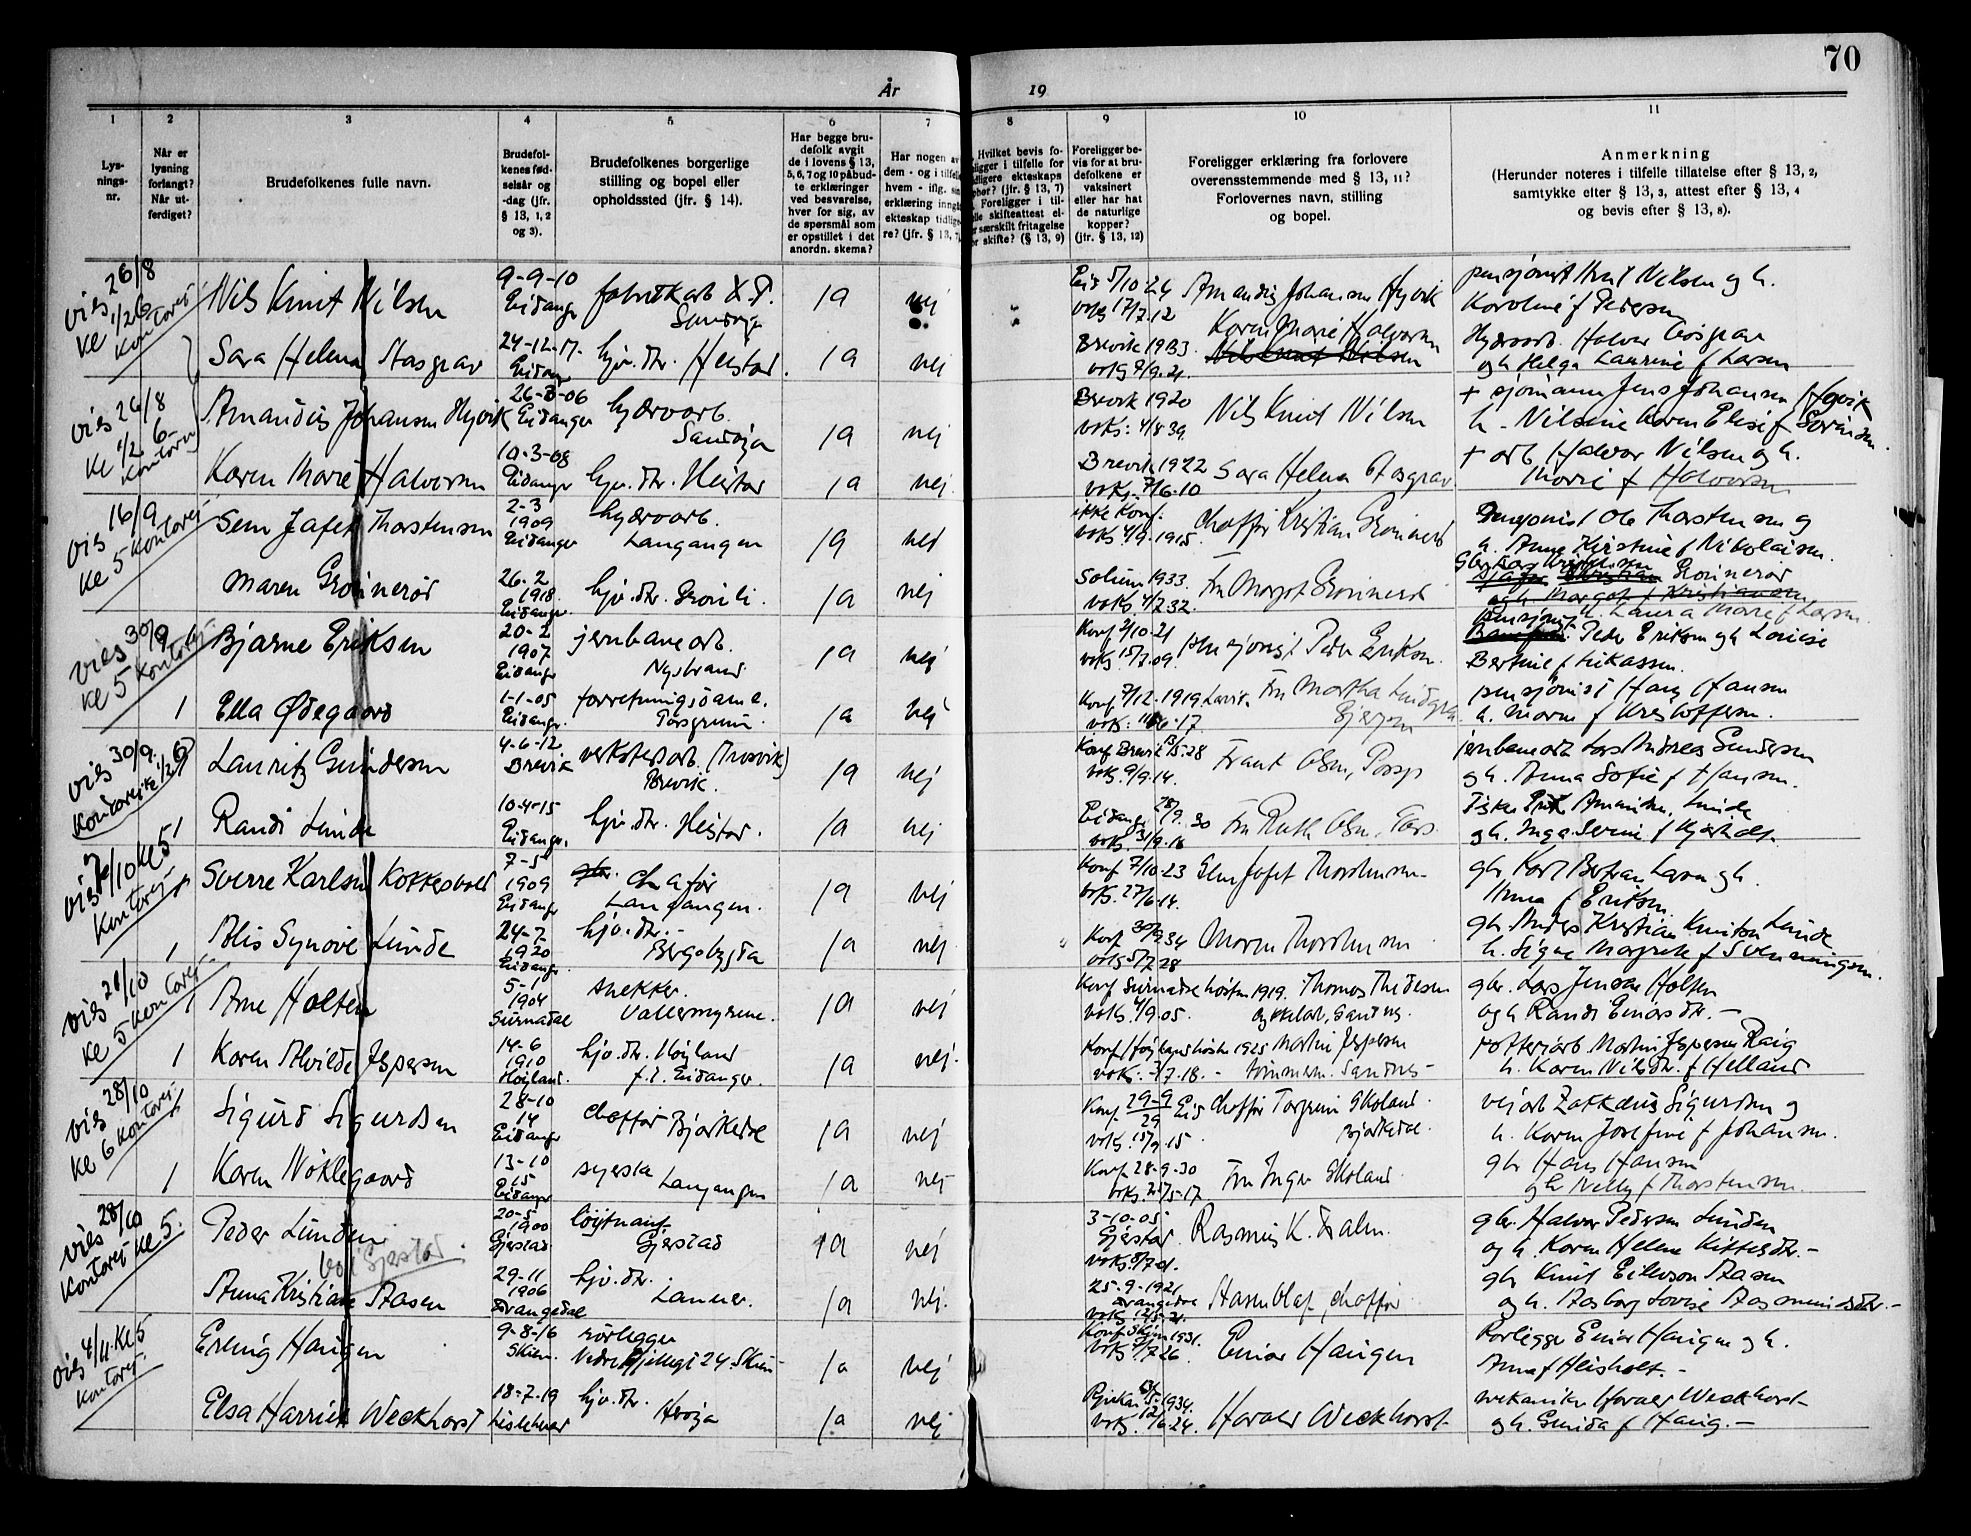 70
År
19
1
2
3
4
5
6
7
8
9
10
11
Lys-
nings-
nr.
Når er
lysning
forlangt?
Når ut-
ferdiget?
Brudefolkenes fulle navn.
Brudefol-
kenes fød-
selsår og
-dag (jfr.
§ 13, 1, 2
og 3).
Brudefolkenes borgerlige
stilling og bopel eller
opholdssted (jfr. § 14).
Har begge bru-
defolk avgit
de i lovens § 13,
5, 6, 7 og 10 påbud-
te erklæringer
ved besvarelse,
hver for sig, av
de spørsmål som
er opstillet i det
anordn. skema?
Har nogen av
dem - og i tilfelle
hvem - iflg. sin
erklæring inngå
ekteskap tidlige-
re? (jfr. § 13, 7,
Hvilket bevis fo-
ligger i tilfelle for
ligere ekteskaps
phør? (jfr. § 13, 7)
Foreligger i til-
lle skifteattest el-
r særskilt fritagelse
or skifte? (§ 13, 9)
Foreligger be-
vis for at bru-
defolkene er
vaksinert
eller har hat
de naturlige
kopper?
(jfr. § 13, 12)
Foreligger erklæring fra forlovere
overensstemmende med § 13, 11?
Forlovernes navn, stilling
og bopel.
Anmerkning
(Herunder noteres i tilfelle tillatelse efter § 13, 2,
samtykke efter § 13, 3, attest efter § 13, 4
og bevis efter § 13, 8).
vies 26/8
ke 1/2 6
kontoret
Nils Knut Nilsen
9-9-10
Eidanger
fabrikkarb
Sandøja
ja
nej
Eid 5/10 24
voks 17/7.12
Amandus Johansen Hyvik
pensjonist Knut Nilsen og h.
Karoline f Pedersen
Sara Helena Stasgrav
24-12-17.
Eidang
hjv. dtr. Heistad.
ja
nej
Brevik 1933.
Karen Marie Halvorsen
Nils Knut Nilsen
Halvor Stasgrav
og h Helga Laurine f Larsen
vies 26/8
ke 1/2 6
Kontoret
Amandus Johansen Hyvik
Eidanger
hjv. arb.
Sandøja
ja
nej
Brevik 1920
voks: 4/8 39.
Nils Knut Nilsen
+ sjømann Jens Johansen Hyvik
Karen Marie Halvorsen
10-3-08
Eidanger
hjv. dtr. Heistad
ja
nej.
Brevik 1922
voks. 7/6.10
Sara Helena Stasgrav
+ arb Halvor Nilsen og h.
Marie f Halvorsen
vies 16/9
ke 5 kontoret
Sem Jafet Thorstensen
2-3
1909
Eidanger
Langangen
ja
ikke konf.
voks 4/9.1915.
Ole Thorstensen og
h. Anna Kirstine f Nikolaisen.
Maren Grønnerød
26.2
1918.
Eidanger
hjv. dtr. Grønli.
ja
nej
Solum 1933.
voks. 4/7 32.
Fru Margot Grønnerød
vies 30/9
ke 5 kontoret
Bjarne Eriksen
20-2
1907.
Eidanger
jernbanearb
Nystrand
ja
nej
Konf 2/10.21
voks 15/7.09.
pensjonist Peder Eriksen.
Peder Eriksen og h Lovise
Bertine f Lukassen.
1
Ella Ødegaard
1-1-05
Eidangr.
forretningsdame.
Porsgrunn.
ja
nej
Konf 7/12.1919
Fru Martha
pensjonist Hans Hansen
h. Maren f Kristoffersen.
vies 30/9.
Kontoret
Lauritz Gundersen
4-6-12.
Brevik
verkstedarb. (Trosvik)
Brevik.
ja
nej
Konf Brevik
voks. 9/9.14.
Frank Olsen, Porsg
jernbanearb Lars Andreas Gundersen
og h. Anna Sofie f Hansen.
1
Randi Lunde
10-4-15
Eidanger.
hjv. dtr. Heistad.
ja
nej
Eidanger 28/9.30
Fru Ruth Olsen, Pors.
vies 7/10 kl 5
Kontoret
Sverre Karlsen Kokkersvold
7-5
1909
Eidanger
chaffør
Langangen.
ja
nej
Konf 7/10-23
voks. 27/6.14.
Sem Jafet Thorstensen
gbr. Karl Bertran Larsen og h.
Anna f Eriksen.
1
Alis Synøve Lunde
24-2
1920
Eidanger
hjv. dtr. -
Bergsbygda
ja
nej
Konf 30/9 34
voks 5/7 28
Maren Thorstensen
gbr. Anders Kristian Knutsen Lunde
h. Signe Margrete f Svenningsen.
vies 21/10
ke 5 kontoret
1
Arne Holten
5-10
1904
Surnadal
snekker.
Vallermyrene.
ja
nej
Konf Surnadal høsten 1919.
voks. 4/9.05.
Thomas Thedesen
gbr. Lars Jensen Holten
og h Randi Einarsdtr. -
1
Karen Alvilde Jespersen
14-6
1910
Høyland.
hjv. dtr. Høyland
f. t. Eidanger.
ja
nej.
Konf Høyland høsten 1925
voks: 3/7.18. -
Martin Jespersen
tømmerm. Sandnes -
pottemarb Martin Jespersen Raig
h. Karen Nilsdtr. f Helland
vies 28/10
ke 6 kontoret
Sigurd Sigurdsen
28-10
14
Eidanger
chaffør Bjørkedal
ja
nej
Konf. 29-9
29 Eid
voks. 15/9.15.
chaffør Torgrim Skoland.
Bjørkedal.
veiarb Zakkæus Sigurdsen og
h. Karen Josefine f Johansen.
1
Karen Nøklegaard
13-10
15
Eidanger
syerske
Langangen
ja
nej
Konf 28-9-30
voks. 25/5-17
Fru Inger Skoland.
gbr Hans Hansen
og h Nelly f Thorstensen.
vies 28/10
Kontoret ke 5.
Peder Lunden
vo i Gjerstad.
20-5
1900
Gjerstad
løytnant
Gjerstad
ja
nej
3-10-05
Gjerstad.
Rasmus K. Dalen.
gbr. Halvor Pedersen Lunden
og h. Karen Helene Kittelsdtr. -
Anna Kristiane Aasen
29-11
1906
Drangedal
hjv. dtr.
Lanner.
ja
nej.
25-9-1921
Drangedal
Aasen Olaf, chaffør
gbr Knut Eilevson Aasen
og h. Aasborg Lovise Aasmundsdtr. -
vies 4/11. kl 5
kontoret.
Erling Haugen
9-8-16
Skien.
rørlegger
Nedre Hjellegt 24. Skien -
ja
nej
Konf Skien 1931.
voks 7/7 26
Einar Haugen
Rørlegger Einar Haugen og h.
Anna f Heisholt. -
Elsa Harriet Weckhorst
18-7-19
Lislehered
hjv. dtr.
Herøja
ja
nej
Rjukan 1934.
voks. 12/6.24.
Harald Weckhorst
mekaniker Harald Weckhorst
og h. Gunda f Haug. -